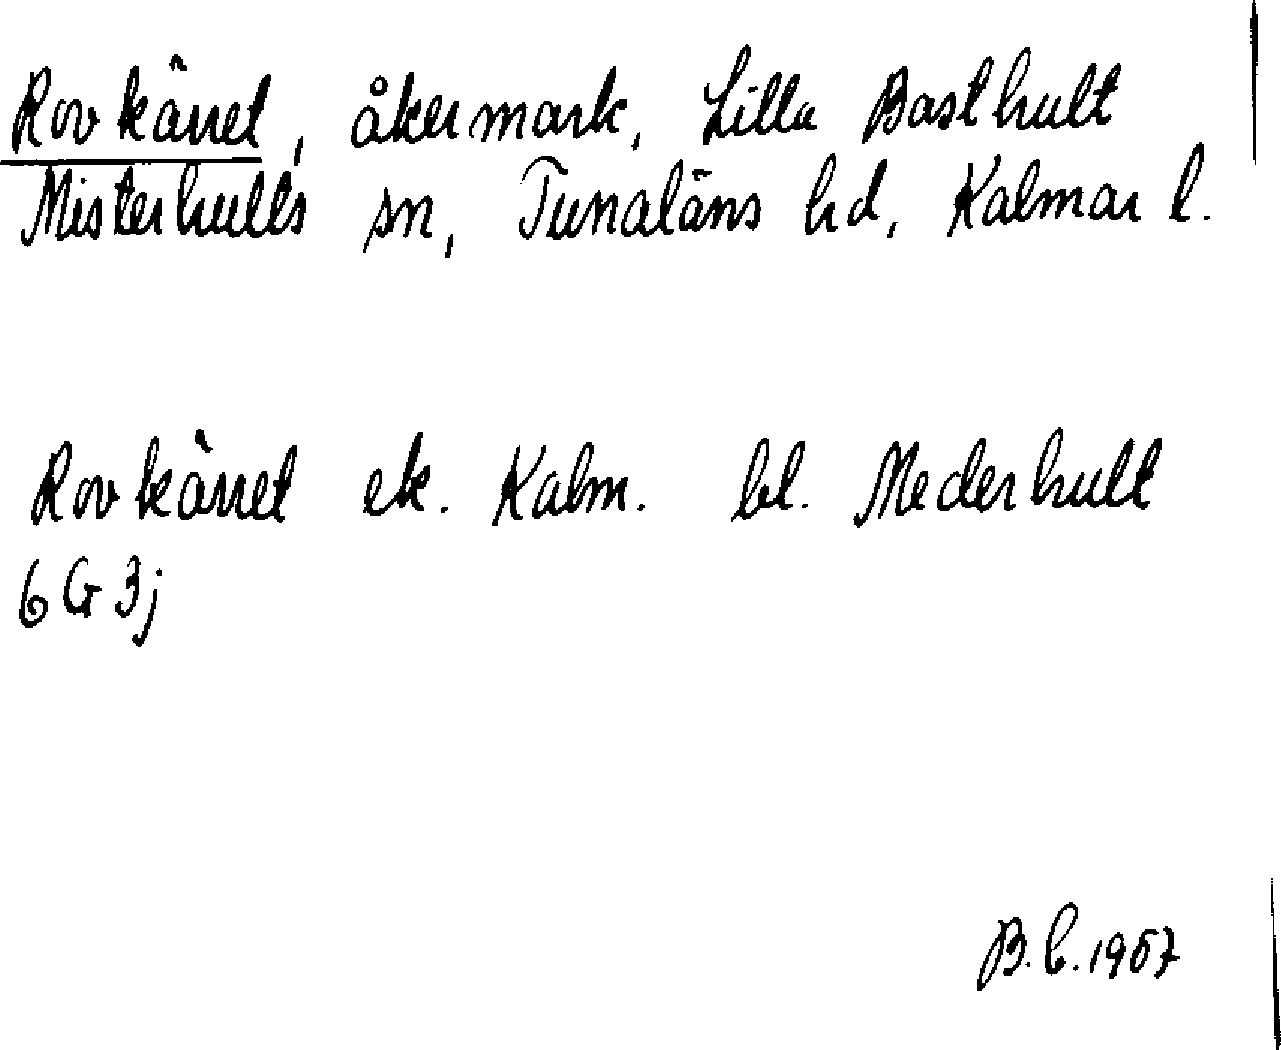 Rovkärret, åkermark, Lilla Basthult
Misterhults sn, Tunaläns hd, Kalmar l.
Rovkärret ek. Kalm. bl. Mederhult
6G3j
B.C. 1967